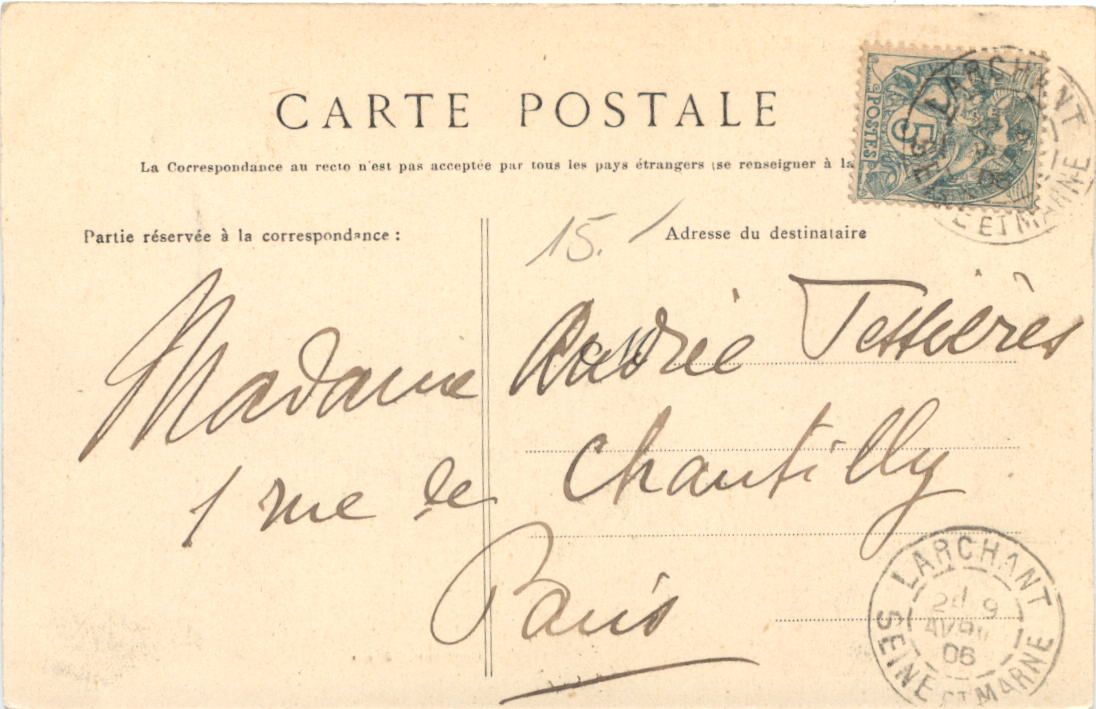 CARTE POSTALE
La Correspondance au recto n'est pas acceptée par tous les pays étrangers (se renseigner à la
POSTES 5
LARCHANT
SEINE ET MARNE
Partie réservée à la correspondance :
15.
Adresse du destinataire
Madame Andrée Tessières
1 rue de Chantilly
Paris
LARCHANT
9
AVRIL
06
SEINE ET MARNE